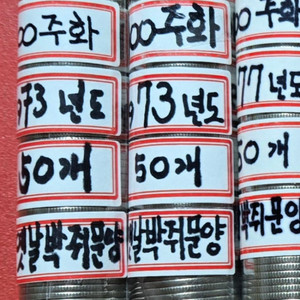 00주화
973년도
50개
옛날박쥐문양
00주화
973년도
50개
옛날박쥐문양
00주화
77년도
50개
박쥐문양